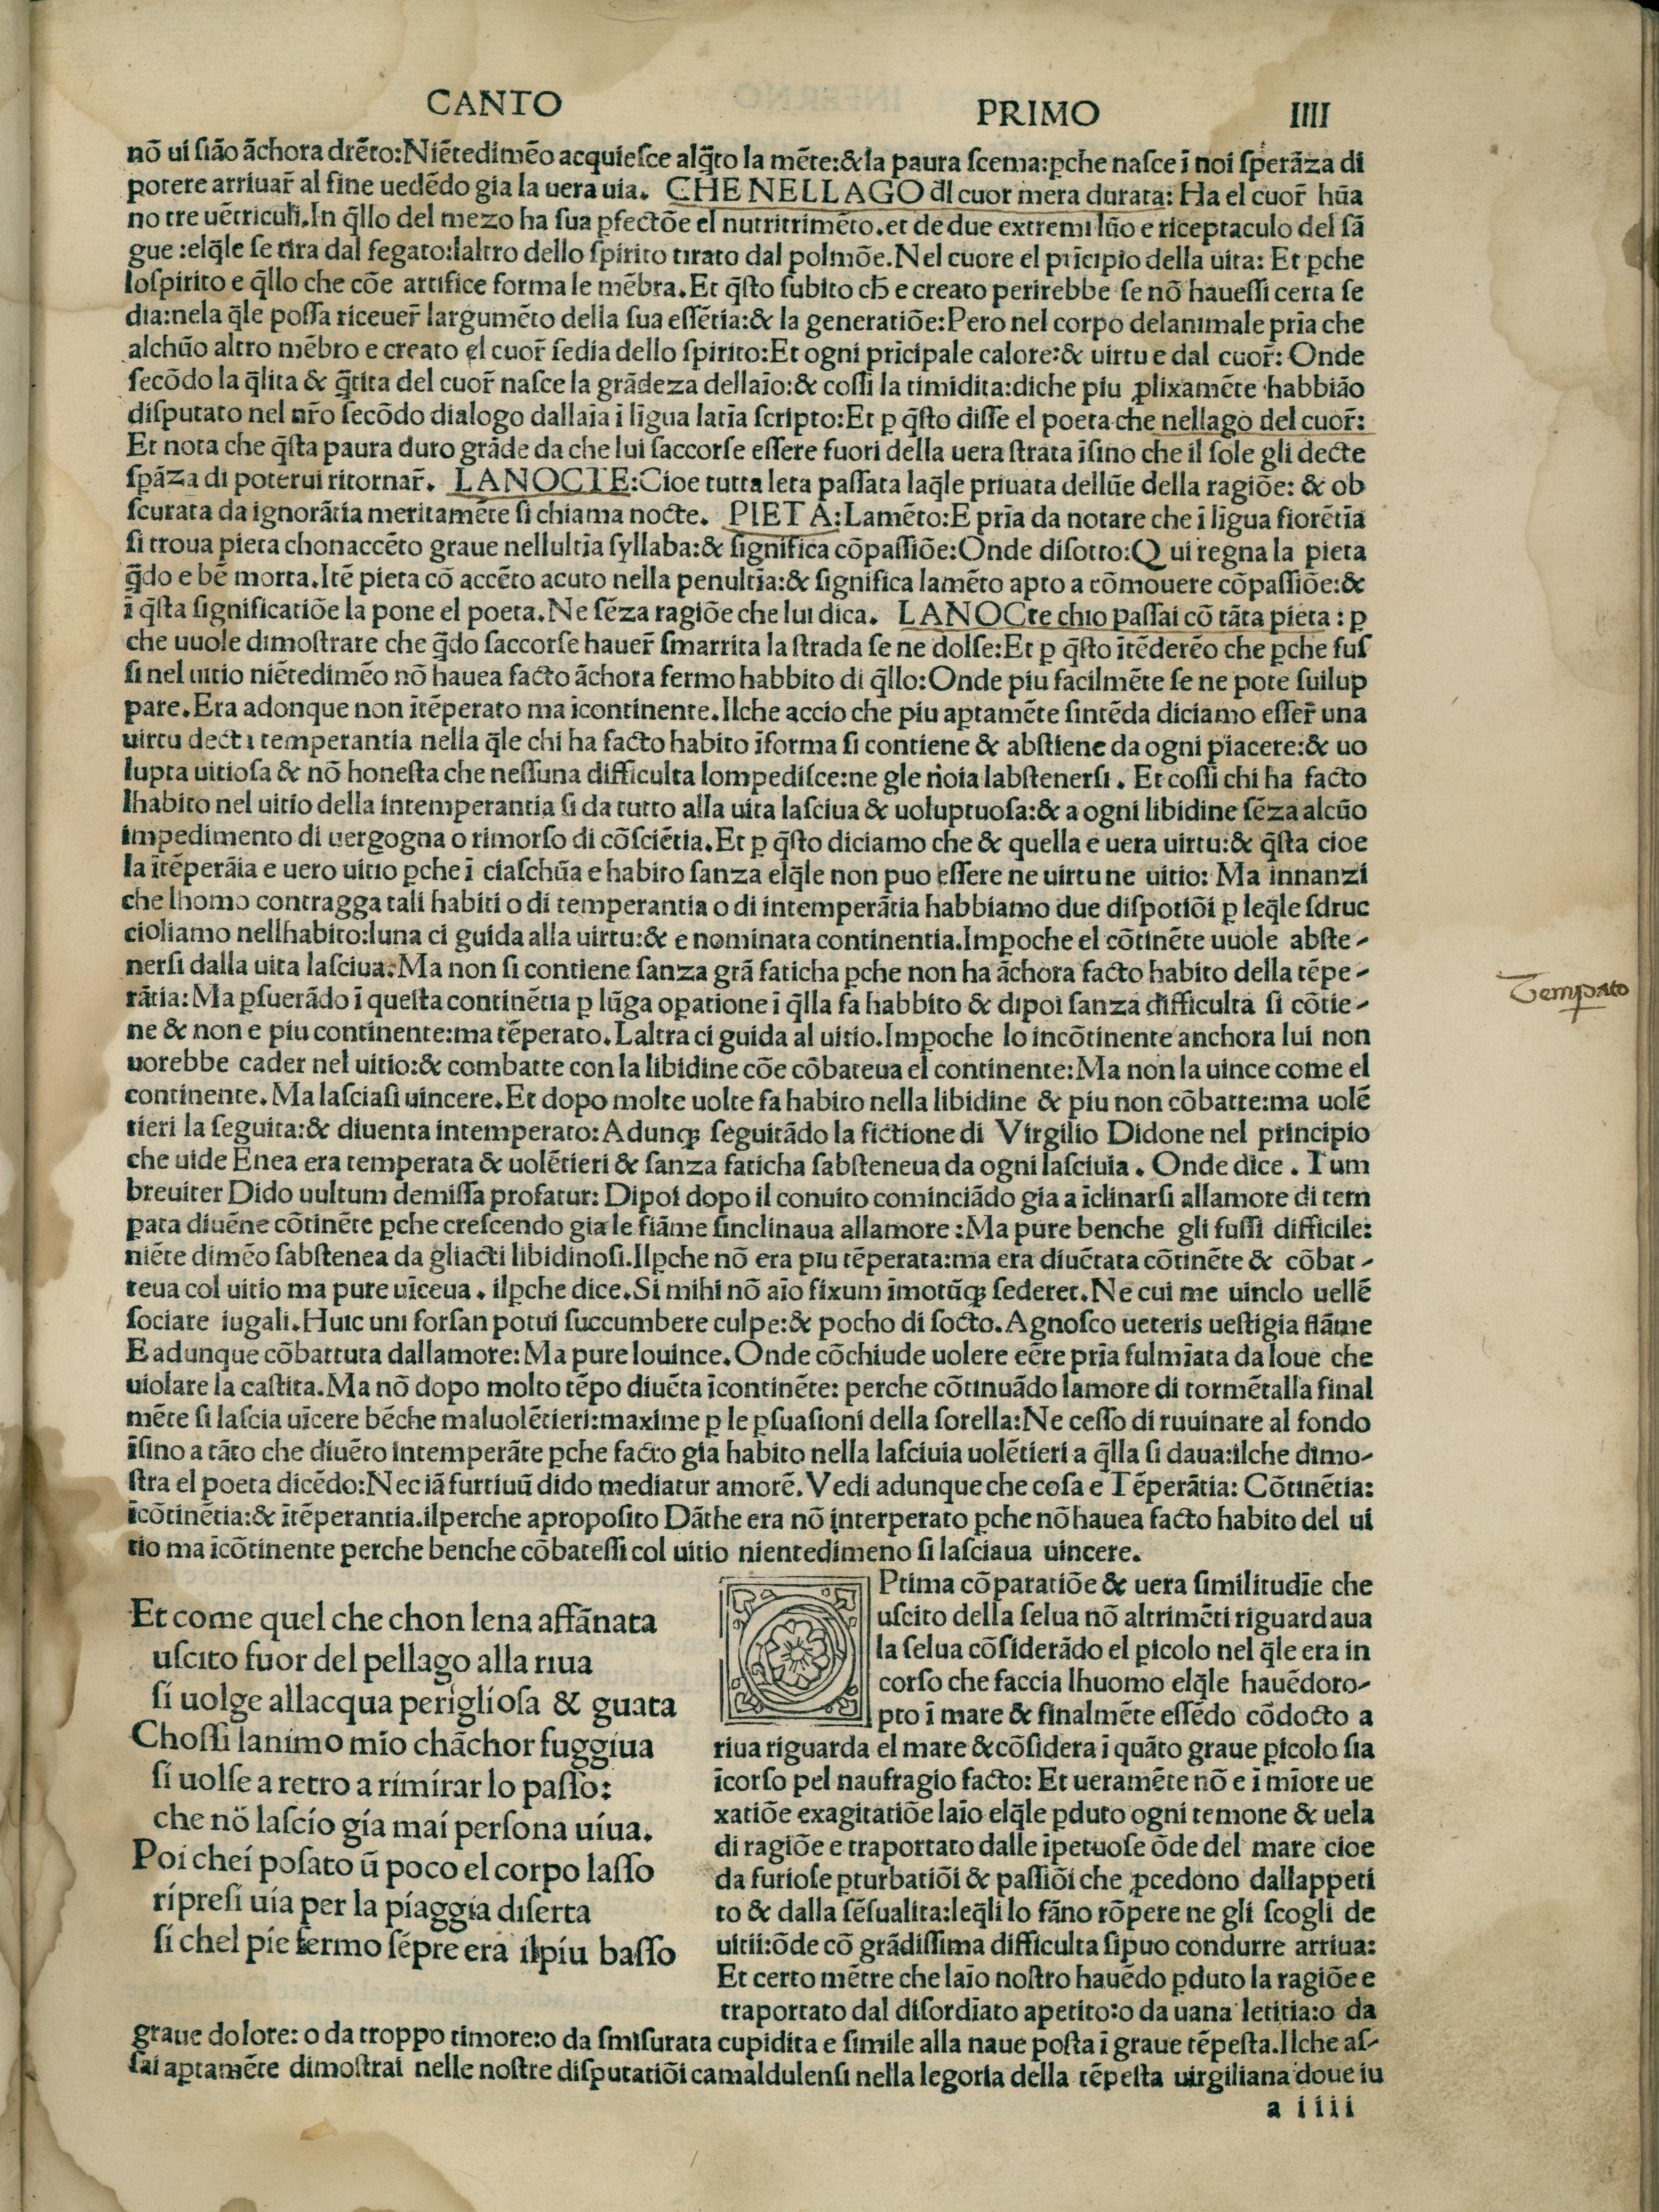 CANTO PRIMO IIII
nō ui ſiāo āchora drēto:Niētedimēo acquieſce alq̄to la mēte:& la paura ſcema:ꝑche naſce ī noi ſperāza di
potere arriuar̄ al fine uedēdo gia la uera uia. CHE NELLAGO dl̄ cuor mera durata: Ha el cuor̄ hūa
no tre uētriculi.In q̄llo del mezo ha ſua ꝑfectōe el nutritrimēto.et de due extremi lūo e riceptaculo del ſā
gue :elq̄le ſe tira dal fegato:laltro dello ſpirito tirato dal polmōe.Nel cuore el prīcipio della uita: Et ꝑche
loſpirito e q̄llo che cōe artifice forma le mēbra.Et q̄ſto ſubito cħ e creato perirebbe ſe nō haueſſi certa ſe
dia:nela q̄le poſſa riceuer̄ largumēto della ſua eſſētia:& la generatiōe:Pero nel corpo delanimale pr̄ia che
alchūo altro mēbro e creato el cuor̄ ſedia dello ſpirito:Et ogni prīcipale calore:& uirtu e dal cuor̄: Onde
ſecōdo la q̄lita & q̄tita del cuor̄ naſce la grādeza dellaīo:& coſſi la timidita:diche piu ꝓlixamēte habbiāo
diſputato nel nr̄o ſecōdo dialogo dallaīa ī līgua latīa ſcripto:Et ꝑ q̄ſto diſſe el poeta che nellago del cuor̄:
Et nota che q̄ſta paura duro grāde da che lui ſaccorſe eſſere fuori della uera ſtrata īſino che il ſole gli decte
ſpāza di poterui ritornar̄. LANOCTE:Cioe tutta leta paſſata laq̄le priuata dellūe della ragiōe: & ob
ſcurata da ignorātia meritamēte ſi chiama nocte. PIETA:Lamēto:E pr̄ia da notare che ī līgua fiorētīa
ſi troua pieta chonaccēto graue nellultīa ſyllaba:& ſignifica cōpaſſiōe:Onde diſotto:Qui regna la pieta
q̄do e bē morta.Itē pieta cō accēto acuto nella penultīa:& ſignifica lamēto apto a cōmouere cōpaſſiōe:&
ī q̄ſta ſignificatiōe la pone el poeta.Ne ſēza ragiōe che lui dica. LANOCte chio paſſai cō tāta pieta : ꝑ
che uuole dimoſtrare che q̄do ſaccorſe hauer̄ ſmarrita la ſtrada ſe ne dolſe:Et ꝑ q̄ſto ītēderēo che ꝑche fuſ
ſi nel uitio niētedimēo nō hauea facto āchora fermo habbito di q̄llo:Onde piu facilmēte ſe ne pote ſuilup
pare.Era adonque non ītēperato ma icontinente.Ilche accio che piu aptamēte ſintēda diciamo eſſer̄ una
uirtu decta temperantia nella q̄le chi ha facto habito īforma ſi contiene & abſtiene da ogni piacere:& uo
lupta uitioſa & nō honeſta che neſſuna difficulta lompediſce:ne gle noia labſtenerſi. Et coſſi chi ha facto
lhabito nel uitio della intemperantia ſi da tutto alla uita laſciua & uoluptuoſa:& a ogni libidine ſēza alcūo
impedimento di uergogna o rimorſo di cōſciētia.Et ꝑ q̄ſto diciamo che & quella e uera uirtu:& q̄ſta cioe
la ītēperāia e uero uitio ꝑche ī ciaſchūa e habito ſanza elq̄le non puo eſſere ne uirtu ne uitio: Ma innanzi
che lhomo contragga tali habiti o di temperantia o di intemperātia habbiamo due diſpotiōi ꝑ leq̄le ſdruc
cioliamo nellhabito:luna ci guida alla uirtu:& e nominata continentia.Impoche el cōtinēte uuole abſte-
nerſi dalla uita laſciua.Ma non ſi contiene ſanza grā faticha ꝑche non ha āchora facto habito della tēpe-
rātia:Ma ꝑſuerādo ī queſta continētia ꝑ lūga opatione ī q̄lla fa habbito & dipoi ſanza difficulta ſi cōtie-
ne & non e piu continente:ma tēperato.Laltra ci guida al uitio.Impoche lo incōtinente anchora lui non
uorebbe cader nel uitio:& combatte con la libidine cōe cōbateua el continente:Ma non la uince come el
continente.Ma laſciaſi uincere.Et dopo molte uolte fa habito nella libidine & piu non cōbatte:ma uolē
tieri la ſeguita:& diuenta intemperato:Adunq; ſeguitādo la fictione di Virgilio Didone nel principio
che uide Enea era temperata & uolētieri & ſanza faticha ſabſteneua da ogni laſciuia. Onde dice. Tum
breuiter Dido uultum demiſſa profatur: Dipoi dopo il conuito cominciādo gia a īclinarſi allamore di tem
ꝑata diuēne cōtinēte ꝑche creſcendo gia le fiāme ſinclinaua allamore :Ma pure benche gli fuſſi difficile:
niēte dimēo ſabſtenea da gliacti libidinoſi.Ilꝑche nō era piu tēperata:ma era diuētata cōtinēte & cōbat-
teua col uitio ma pure uīceua. ilꝑche dice.Si mihi nō aīo fixum īmotūq; ſederet.Ne cui me uinclo uellē
ſociare iugali.Huic uni forſan potui ſuccumbere culpe:& pocho di ſocto.Agnoſco ueteris ueſtigia flāme
E adunque cōbattuta dallamore:Ma pure louince.Onde cōchiude uolere eēre pr̄ia fulmīata da Ioue che
uiolare la caſtita.Ma nō dopo molto tēpo diuēta īcontinēte: perche cōtinuādo lamore di tormētalla final
mēte ſi laſcia uīcere bēche maluolētieri:maxime ꝑ le ꝑſuaſioni della ſorella:Ne ceſſo di ruuinare al fondo
īſino a tāto che diuēto intemperāte ꝑche facto gia habito nella laſciuia uolētieri a q̄lla ſi daua:ilche dimo-
ſtra el poeta dicēdo:Nec iā furtiuū dido mediatur amorē.Vedi adunque che coſa e Tēperātia: Cōtinētia:
īcōtinētia:& ītēperantia.ilperche apropoſito Dāthe era nō interperato ꝑche nō hauea facto habito del ui
tio ma īcōtinente perche benche cōbateſſi col uitio nientedimeno ſi laſciaua uincere.
Et come quel che chon lena affānata
uſcito fuor del pellago alla riua
ſi uolge allacqua perigliοſa & guata
Choſſi lanimo mīo chāchor fuggiua
ſi uolſe a retro a rimirar lo paſſo:
che nō laſcio gia mai perſona uiua.
Poi chei poſato ū poco el corpo laſſo
ripreſi uia per la piaggia diſerta
ſi chel pie fermo ſēpre era ilpiu baſſo
Prima cōparatiōe & uera ſimilitudīe che
uſcito della ſelua nō altrimēti riguardaua
la ſelua cōſiderādo el ꝑicolo nel q̄le era in
corſo che faccia lhuomo elq̄le hauēdoro-
pto ī mare & finalmēte eſſēdo cōdocto a
riua riguarda el mare &cōſidera ī quāto graue ꝑicolo ſia
īcorſo pel naufragio facto: Et ueramēte nō e ī mīore ue
xatiōe exagitatiōe laīo elq̄le ꝑduto ogni temone & uela
di ragiōe e traportato dalle īpetuoſe ōde del mare cioe
da furioſe ꝑturbatiōi & paſſiōi che ꝓcedono dallappeti
to & dalla ſēſualita:leq̄li lo fāno rōpere ne gli ſcogli de
uitii:ōde cō grādiſſima difficulta ſipuo condurre arriua:
Et certo mētre che laīo noſtro hauēdo ꝑduto la ragiōe e
traportato dal diſordīato apetito:o da uana letitia:o da
graue dolore: o da troppo timore:o da ſmiſurata cupidita e ſimile alla naue poſta ī graue tēpeſta.Ilche aſ-
ſai aptamēte dimoſtrai nelle noſtre diſputatiōi camaldulenſi nella legoria della tēpeſta uirgiliana doue iu
a iiii
Temꝑato